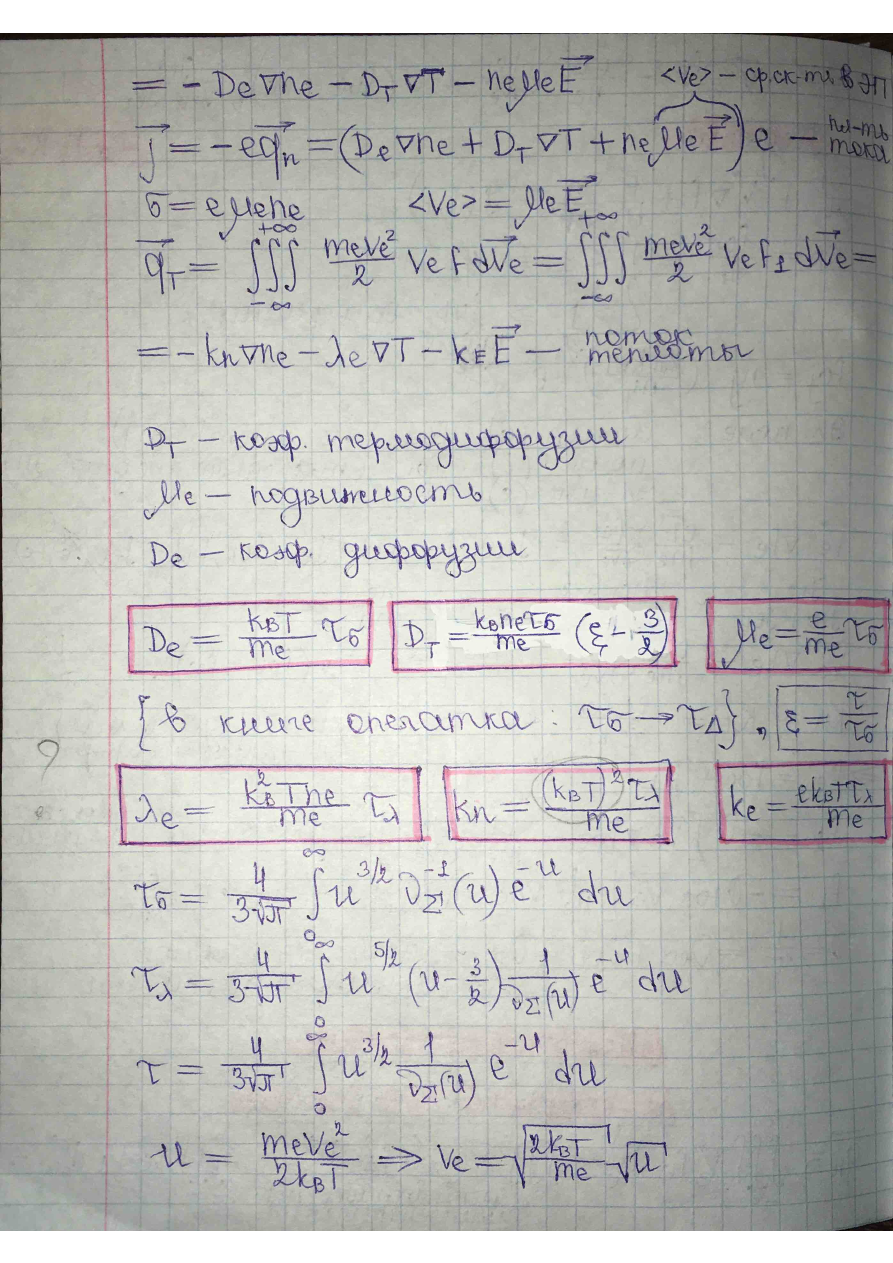 = - De∇ne - D_T∇T - neμeE⃗   <Ve> - ср.ск-ть в ЭП
j⃗ = -eq⃗n = (De∇ne + D_T∇T + neμeE⃗)e - пл-ть тока
σ = eμene   <Ve> = μeE⃗
q⃗_T = ∫∫∫_{-∞}^{+∞} meVe²/2 Ve f dV⃗e = ∫∫∫_{-∞}^{+∞} meVe²/2 Ve f₁ dV⃗e =
= - kn∇ne - λe∇T - k_E E⃗ - поток теплоты
D_T - коэф. термодиффузии
μe - подвижность
De - коэф. диффузии
De = kBT/me τσ   D_T = kBneτσ/me (ξ - 3/2)   μe = e/me τσ
{в книге опечатка: τσ → τΔ}, ξ = τ/τσ
?
λe = kB²Tne/me τλ   kn = (kBT)²τλ/me   ke = ekBTτλ/me
τσ = 4/3√π ∫₀^∞ u^{3/2} ν_Σ^{-1}(u) e^{-u} du
τλ = 4/3√π ∫₀^∞ u^{5/2} (u - 3/2) 1/ν_Σ(u) e^{-u} du
τ = 4/3√π ∫₀^∞ u^{3/2} 1/ν_Σ(u) e^{-u} du
u = meVe²/2kBT ⇒ Ve = √(2kBT/me) √u